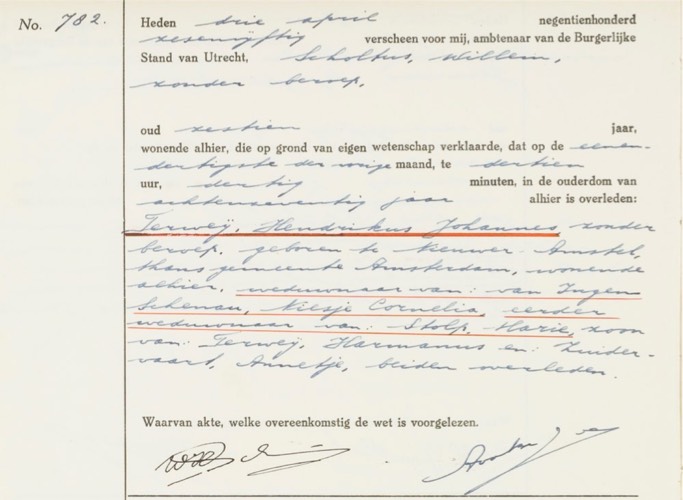 No. 782.
Heden drie april negentienhonderd
zesenvijftig verscheen voor mij, ambtenaar van de Burgerlijke
Stand van Utrecht, Scholtus, Willem,
zonder beroep,
oud zestien jaar,
wonende alhier, die op grond van eigen wetenschap verklaarde, dat op de eenen-
dertigste der vorige maand, te dertien
uur, dertig minuten, in de ouderdom van
achtenzeventig jaar alhier is overleden:
Terweij, Hendrikus Johannes, zonder
beroep, geboren te Nieuwer-Amstel,
thans gemeente Amsterdam, wonende
alhier, weduwnaar van: van Ingen
Schenau, Niesje Cornelia, eerder
weduwnaar van: Stolp, Marie, zoon
van: Terweij, Harmanus en: Zuider-
vaart, Annetje, beiden overleden.
Waarvan akte, welke overeenkomstig de wet is voorgelezen.